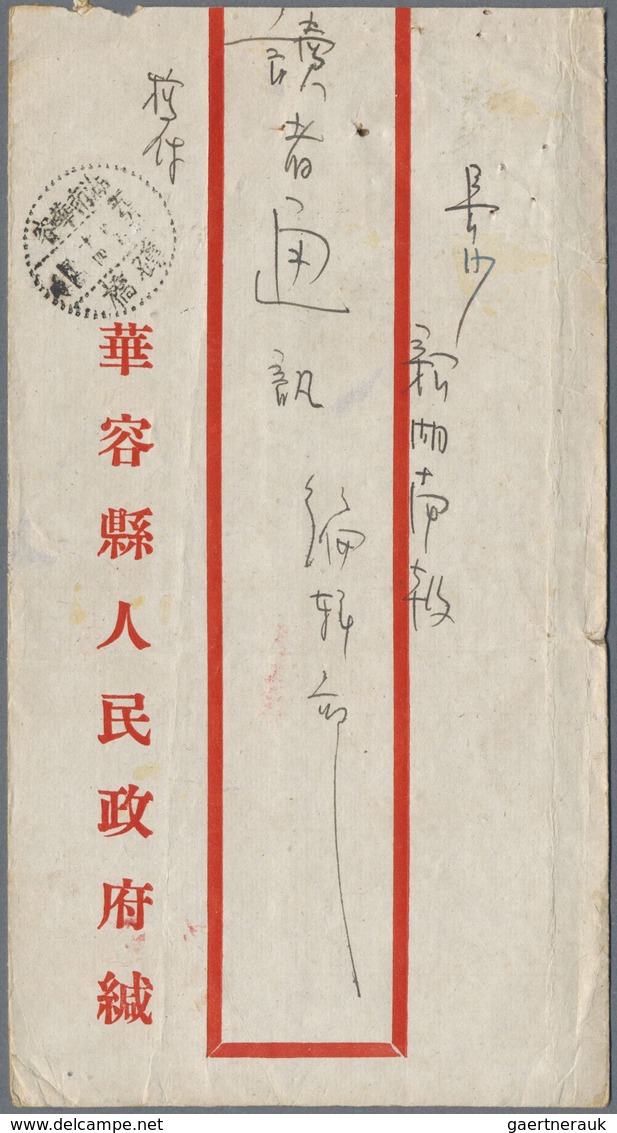 長沙
新湖南報
讀者通訊編輯部
稿件
華容縣人民政府緘
delcampe.net
gaertnerauk